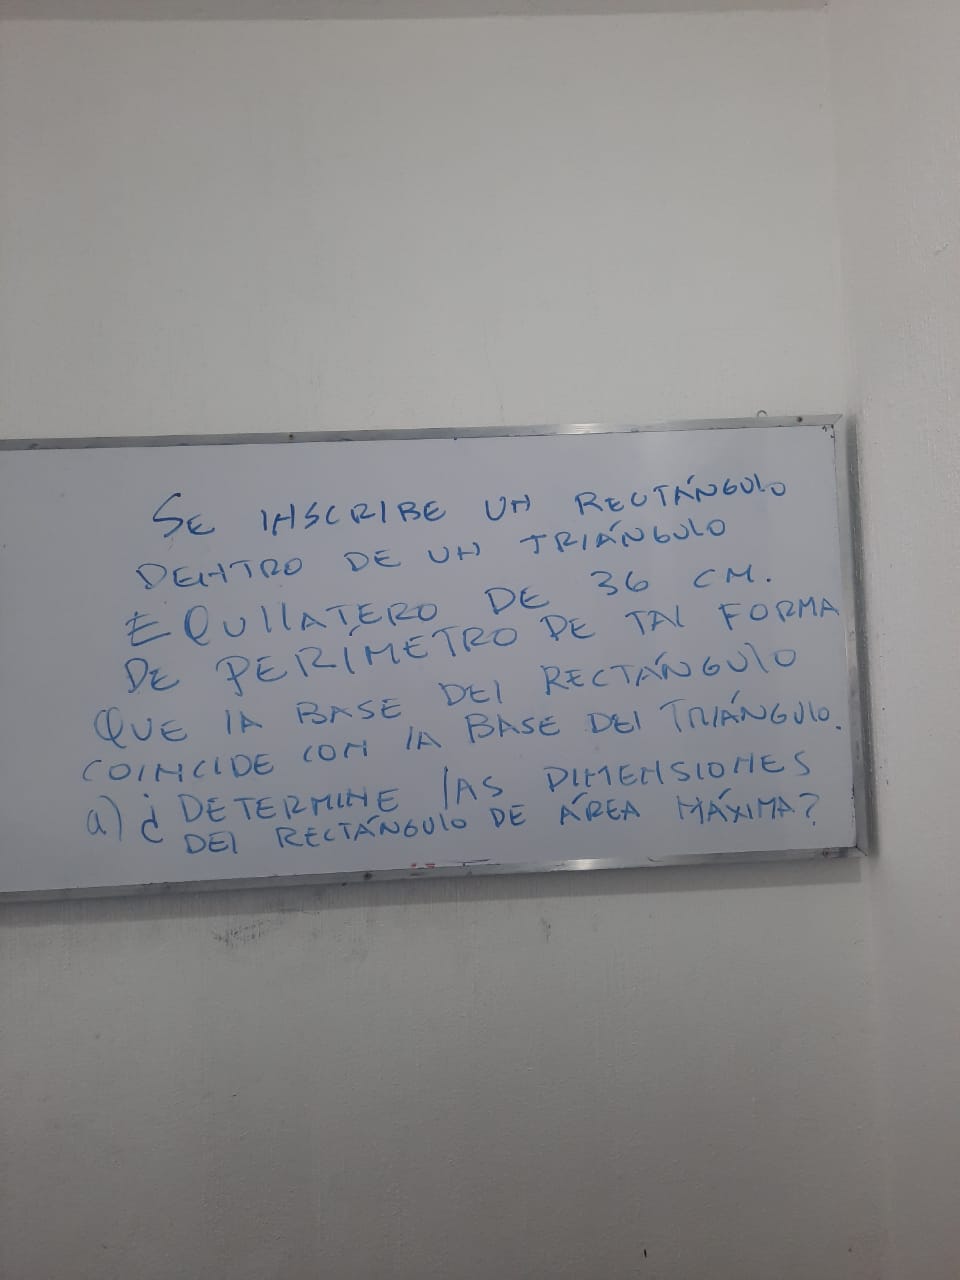 SE INSCRIBE UN RECTÁNGULO
DENTRO DE UN TRIÁNGULO
EQUILATERO DE 36 CM.
DE PERÍMETRO DE TAL FORMA
QUE LA BASE DEL RECTÁNGULO
COINCIDE CON LA BASE DEL TRIÁNGULO.
a) ¿ DETERMINE LAS DIMENSIONES
DEL RECTÁNGULO DE ÁREA MÁXIMA?